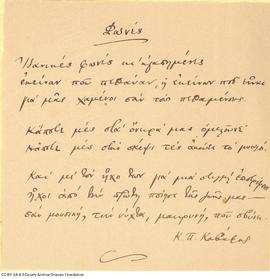 Φωνές
Ιδανικές φωνές κι αγαπημένες
εκείνων που πεθάναν, ή εκείνων που είναι
για μας χαμένοι σαν τους πεθαμένους.
Κάποτε μες στα όνειρά μας ομιλούνε·
κάποτε μες στην σκέψι τες ακούει το μυαλό.
Και με τον ήχο των για μια στιγμή επιστρέφουν
ήχοι από την πρώτη ποίησι της ζωής μας —
σα μουσική, την νύχτα, μακρυνή, που σβύνει.
Κ. Π. Καβάφης